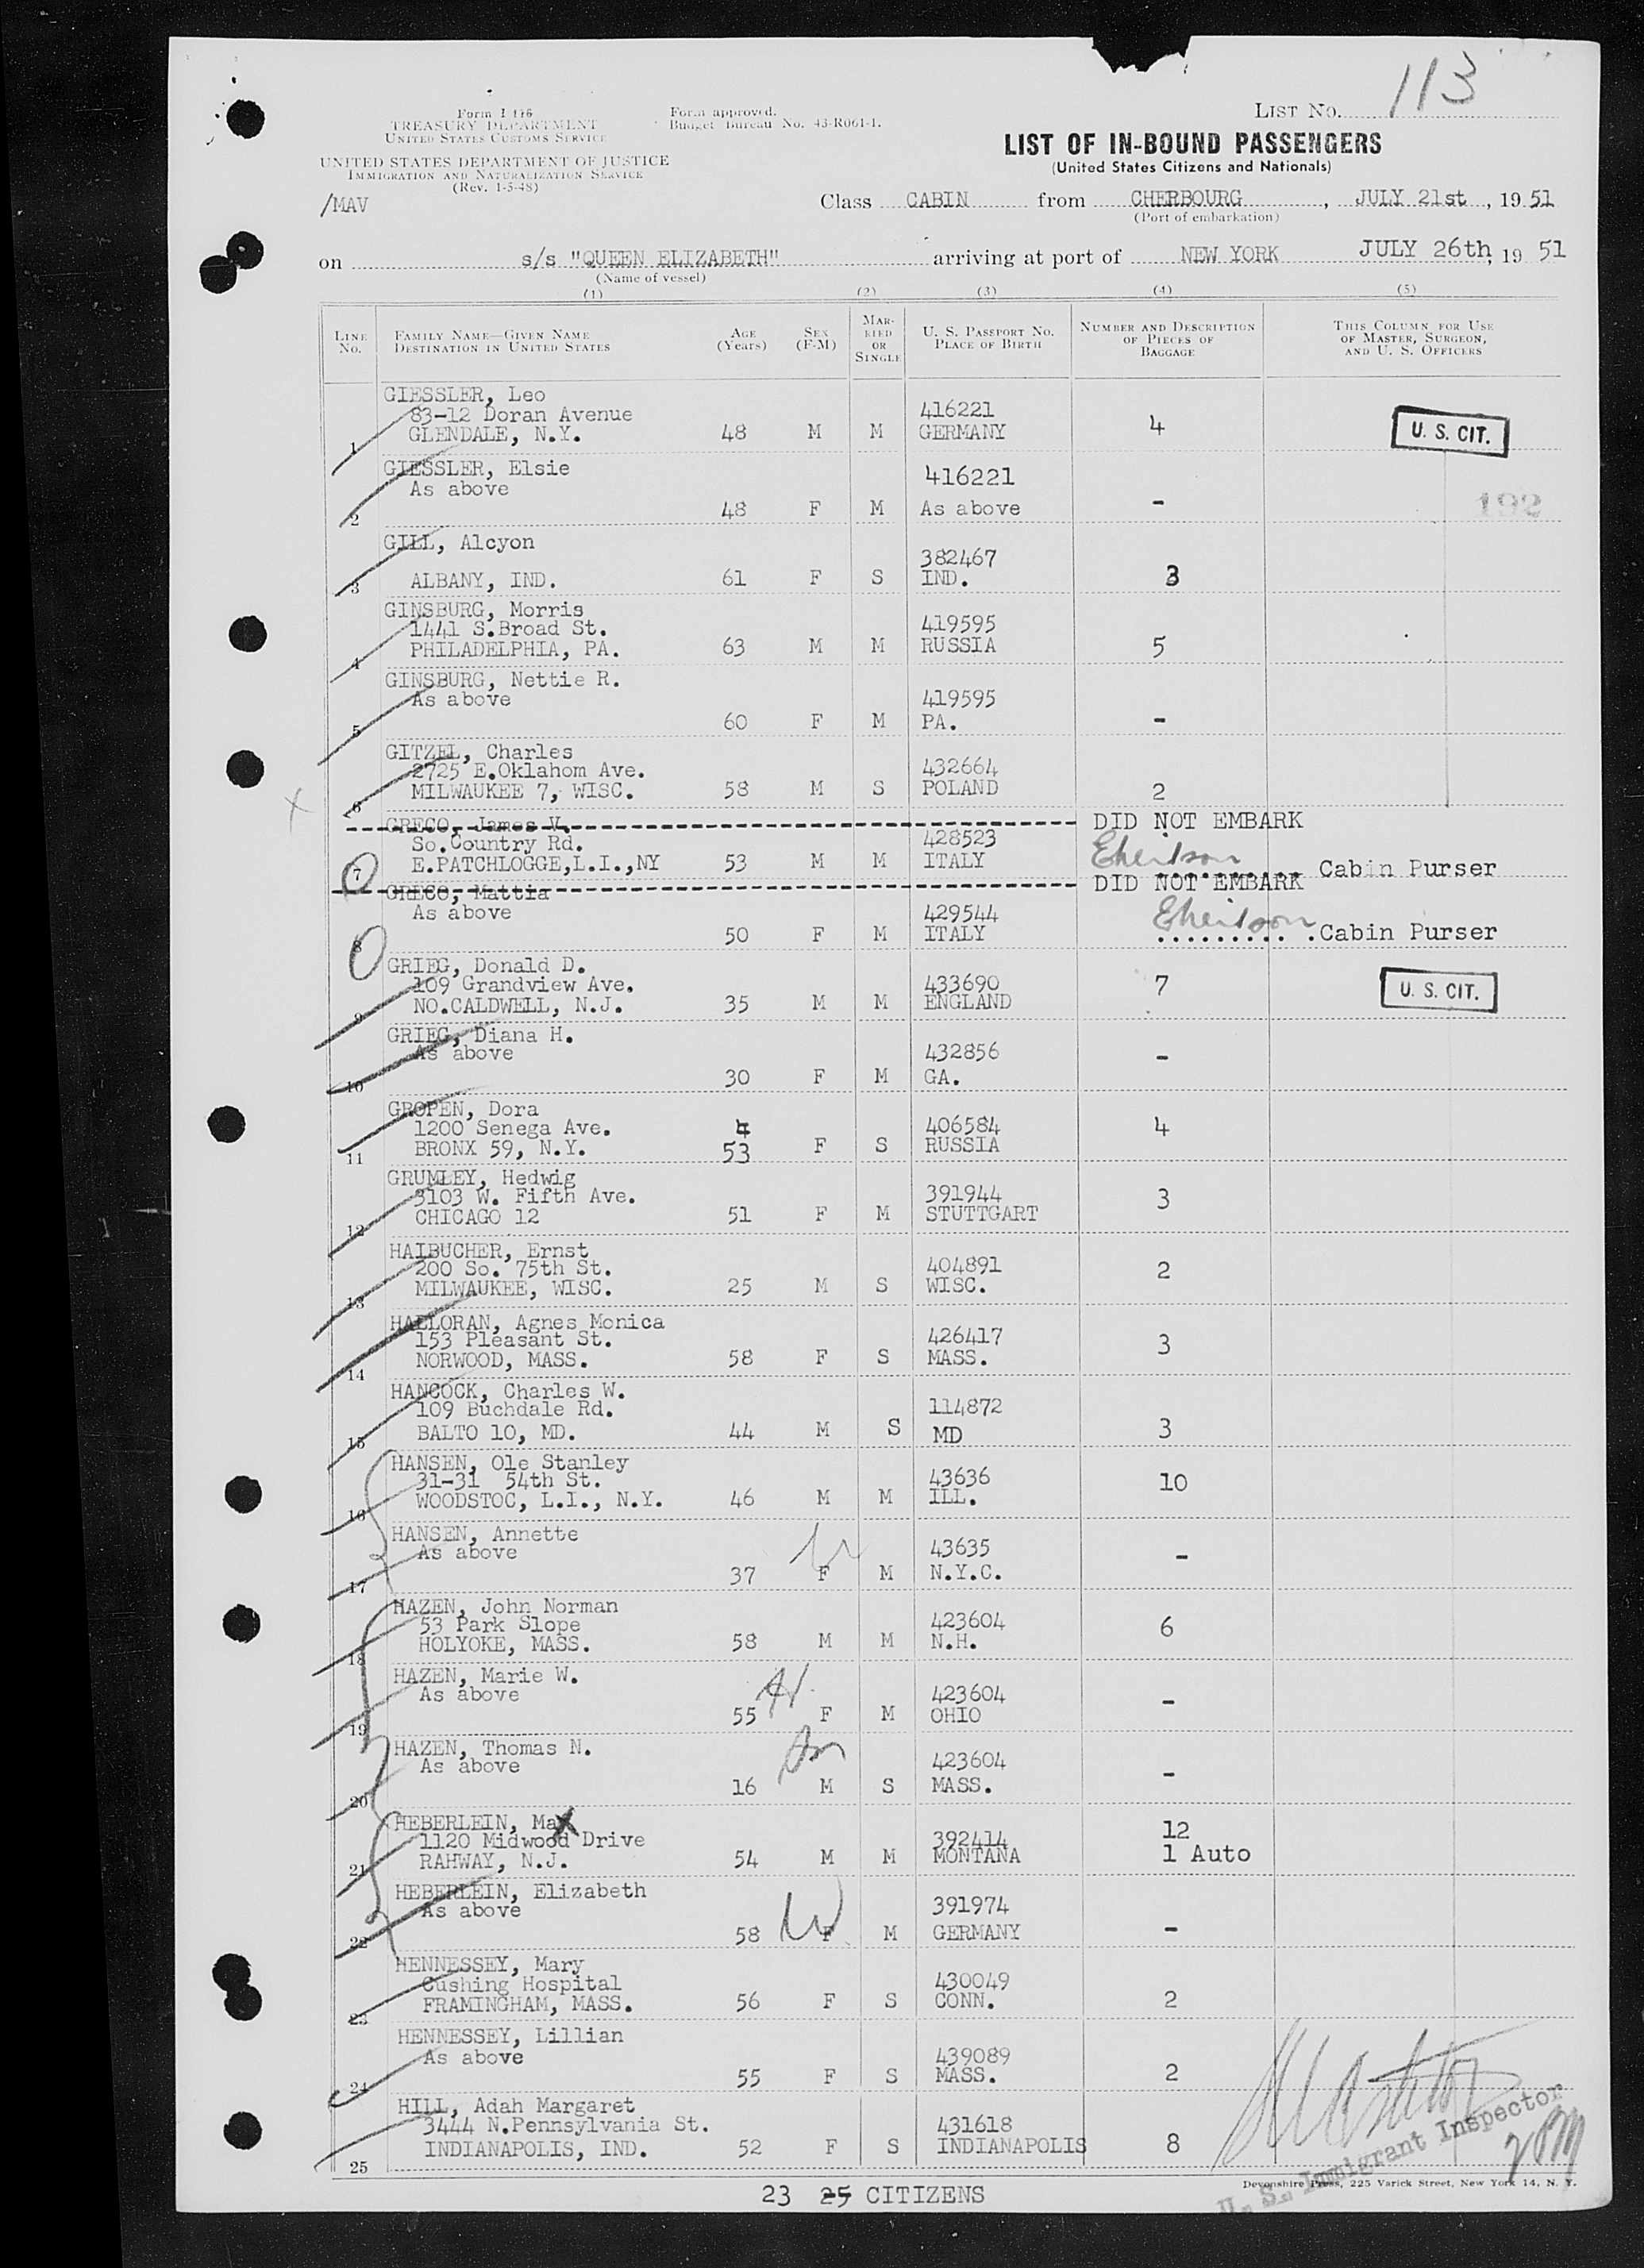 113
LIST NO.
Form I 416
TREASURY DEPARTMENT
UNITED STATES CUSTOMS SERVICE
Form approved.
Budget Bureau No. 43-R061-1.
UNITED STATES DEPARTMENT OF JUSTICE
IMMIGRATION AND NATURALIZATION SERVICE
(Rev. 1-5-48)
LIST OF IN-BOUND PASSENGERS
(United States Citizens and Nationals)
/MAV
Class CABIN from CHERBOURG, JULY 21st, 1951
(Port of embarkation)
on s/s "QUEEN ELIZABETH" arriving at port of NEW YORK JULY 26th, 1951
(Name of vessel)
(1) (2) (3) (4) (5)
LINE No.
FAMILY NAME—GIVEN NAME
DESTINATION IN UNITED STATES
AGE (Years)
SEX (F-M)
MARRIED OR SINGLE
U. S. PASSPORT NO.
PLACE OF BIRTH
NUMBER AND DESCRIPTION OF PIECES OF BAGGAGE
THIS COLUMN FOR USE OF MASTER, SURGEON, AND U. S. OFFICERS
GIESSLER, Leo
83-12 Doran Avenue 416221
1 GLENDALE, N.Y. 48 M M GERMANY 4 U. S. CIT.
GIESSLER, Elsie 416221
As above
2 48 F M As above - 192
GILL, Alcyon 382467
3 ALBANY, IND. 61 F S IND. 3
GINSBURG, Morris
1441 S.Broad St. 419595
4 PHILADELPHIA, PA. 63 M M RUSSIA 5
GINSBURG, Nettie R.
As above 419595
5 60 F M PA. -
GITZEL, Charles
2725 E.Oklahom Ave. 432664
6 MILWAUKEE 7, WISC. 58 M S POLAND 2
GRECO, James V. DID NOT EMBARK
So.Country Rd. 428523
7 E.PATCHLOGGE,L.I.,NY 53 M M ITALY Cabin Purser
GRECO, Mattia DID NOT EMBARK
As above 429544
8 50 F M ITALY ..........Cabin Purser
GRIEG, Donald D.
109 Grandview Ave. 433690 7 U. S. CIT.
9 NO.CALDWELL, N.J. 35 M M ENGLAND
GRIEG, Diana H.
As above 432856 -
10 30 F M GA.
GROPEN, Dora
1200 Senega Ave. 4 406584 4
11 BRONX 59, N.Y. 53 F S RUSSIA
GRUMLEY, Hedwig
3103 W. Fifth Ave. 391944 3
12 CHICAGO 12 51 F M STUTTGART
HAIBUCHER, Ernst
200 So. 75th St. 404891 2
13 MILWAUKEE, WISC. 25 M S WISC.
HALLORAN, Agnes Monica
153 Pleasant St. 426417 3
14 NORWOOD, MASS. 58 F S MASS.
HANCOCK, Charles W.
109 Buchdale Rd. 114872
15 BALTO 10, MD. 44 M S MD 3
HANSEN, Ole Stanley
31-31 54th St. 43636 10
16 WOODSTOC, L.I., N.Y. 46 M M ILL.
HANSEN, Annette
As above 43635 -
17 37 F M N.Y.C.
HAZEN, John Norman
53 Park Slope 423604 6
18 HOLYOKE, MASS. 58 M M N.H.
HAZEN, Marie W.
As above 423604 -
19 55 F M OHIO
HAZEN, Thomas N.
As above 423604 -
20 16 M S MASS.
HEBERLEIN, Max 12
1120 Midwood Drive 392414 1 Auto
21 RAHWAY, N.J. 54 M M MONTANA
HEBERLEIN, Elizabeth
As above 391974
22 58 W F M GERMANY -
HENNESSEY, Mary
Cushing Hospital 430049
23 FRAMINGHAM, MASS. 56 F S CONN. 2
HENNESSEY, Lillian
As above 439089
24 55 F S MASS. 2
HILL, Adah Margaret
3444 N.Pennsylvania St. 431618
25 INDIANAPOLIS, IND. 52 F S INDIANAPOLIS 8
U. S. Immigrant Inspector
Devonshire Press, 225 Varick Street, New York 14, N. Y.
23 25 CITIZENS